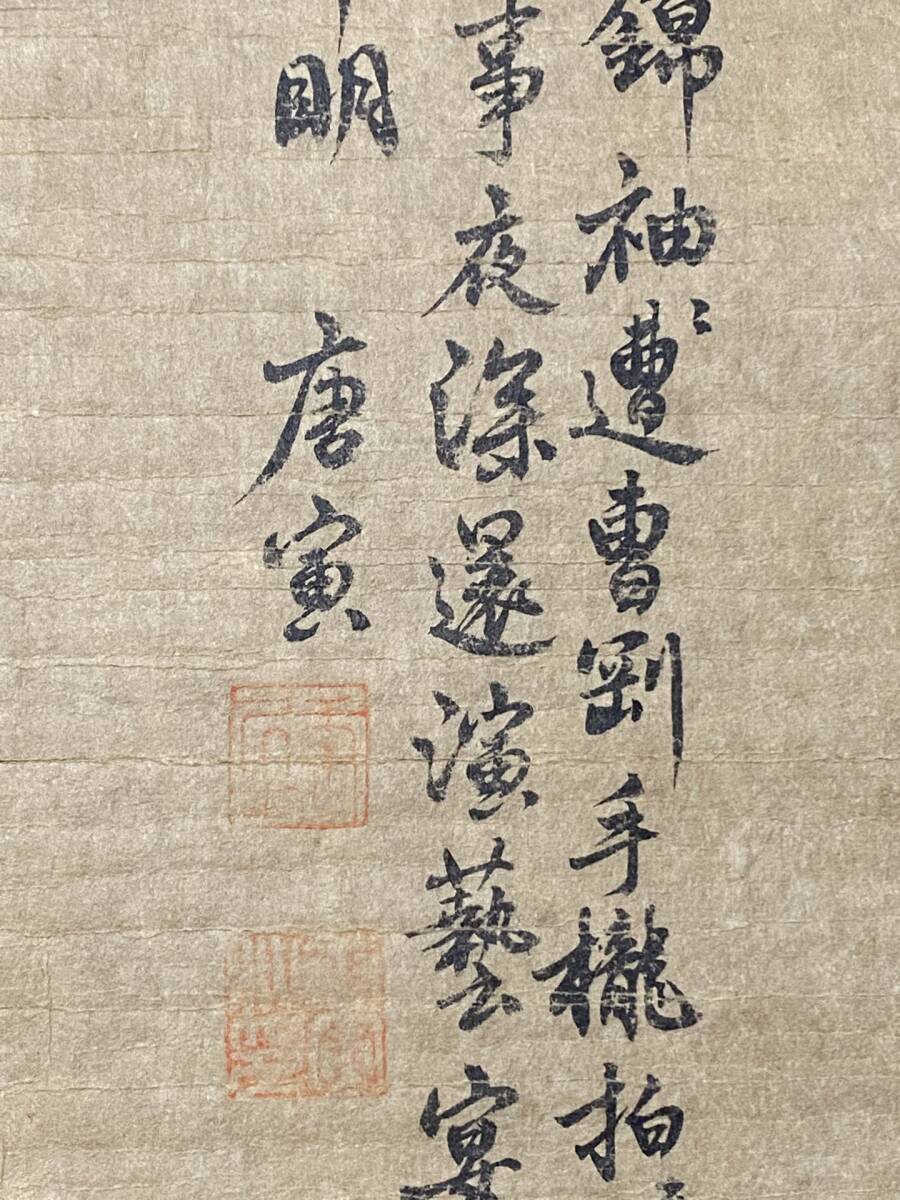 錦袖遭曹剛手櫳拍
事夜深還演藝宴
明 唐寅